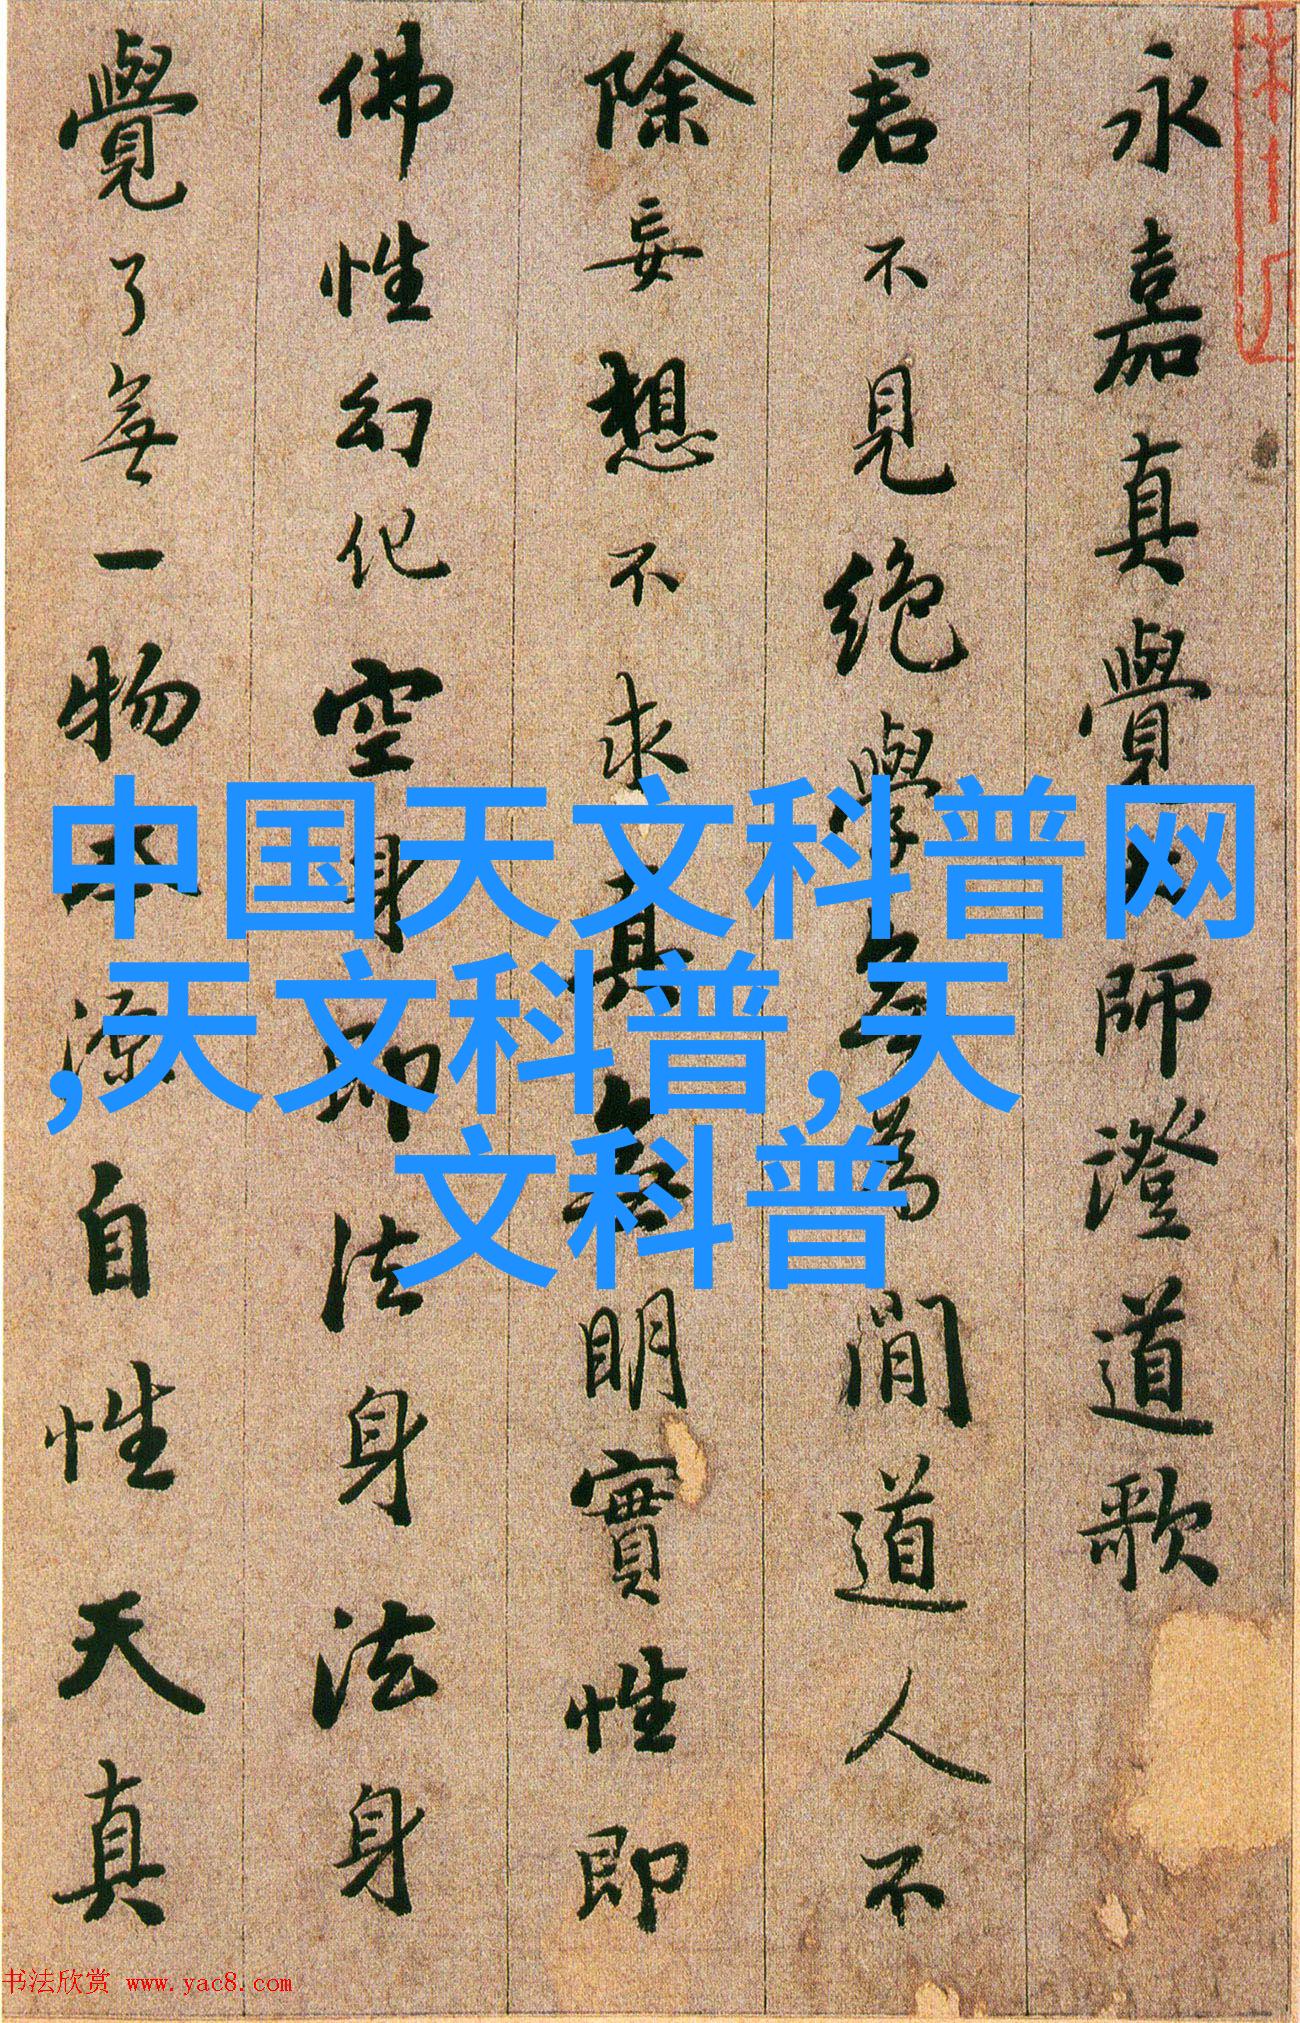 永嘉真覺大師澄道歌
君不見絶學無為閒道人不
除妄想不求真無明實性即
佛性幻化空身即法身法身
覺了無一物本源自性天真
中国天文科普网
,天文科普,天
文科普
书法欣赏 www.yac8.com